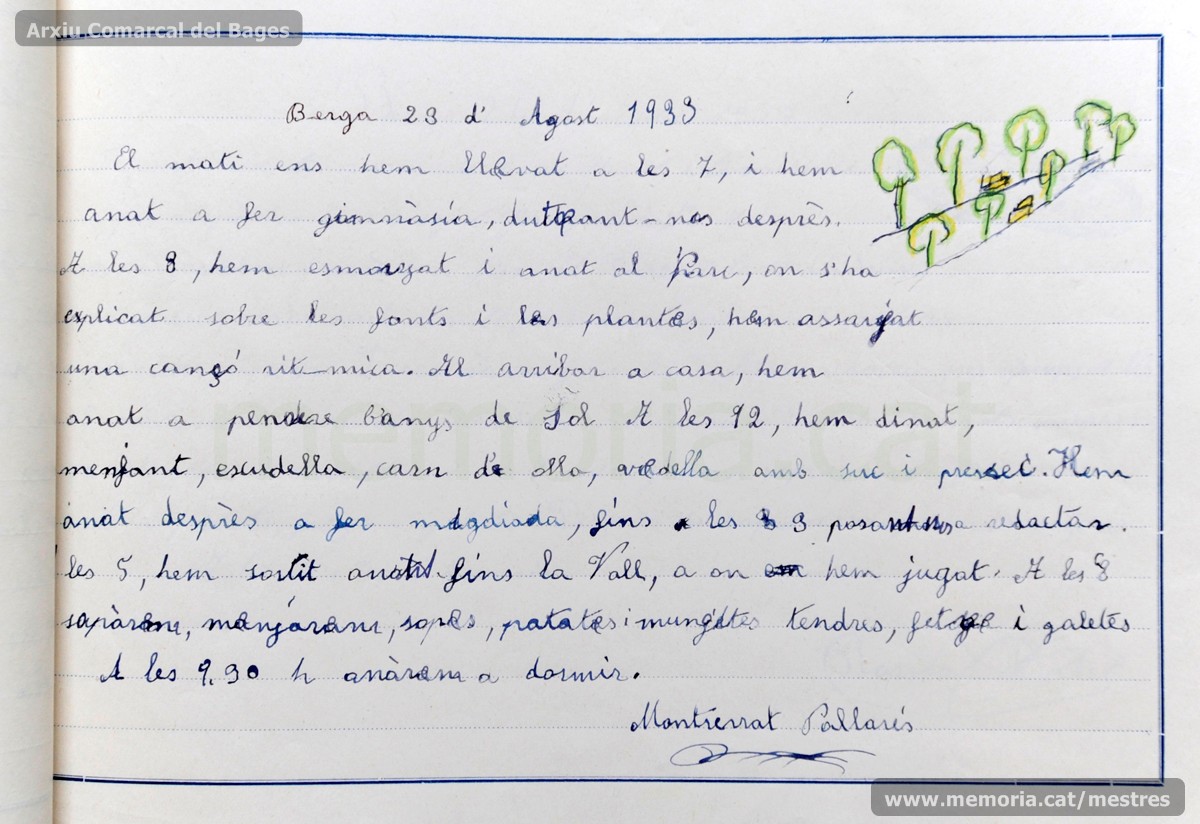 Arxiu Comarcal del Bages
Berga 23 d' Agost 1933
El mati ens hem llevat a les 7, i hem
anat a fer gimnàsia, dutxant-nos desprès.
A les 8, hem esmorzat i anat al Parc, on s'ha
explicat sobre les fonts i les plantes, hem assarjat
una cançó rit-mica. Al arribar a casa, hem
anat a pendre banys de Sol A les 12, hem dinat,
menjant, escudella, carn d'olla, vedella amb suc i presec. Hem
anat desprès a fer migdiada, fins a les 3 posant-nos a redactar.
les 5, hem sortit anant fins la Vall, a on hem jugat. A les 8
sopàrem, menjàrem, sopes, patates i mungetes tendres, fetge i galetes
A les 9,30 h anàrem a dormir.
Montserrat Pallarés
memoria.cat
www.memoria.cat/mestres